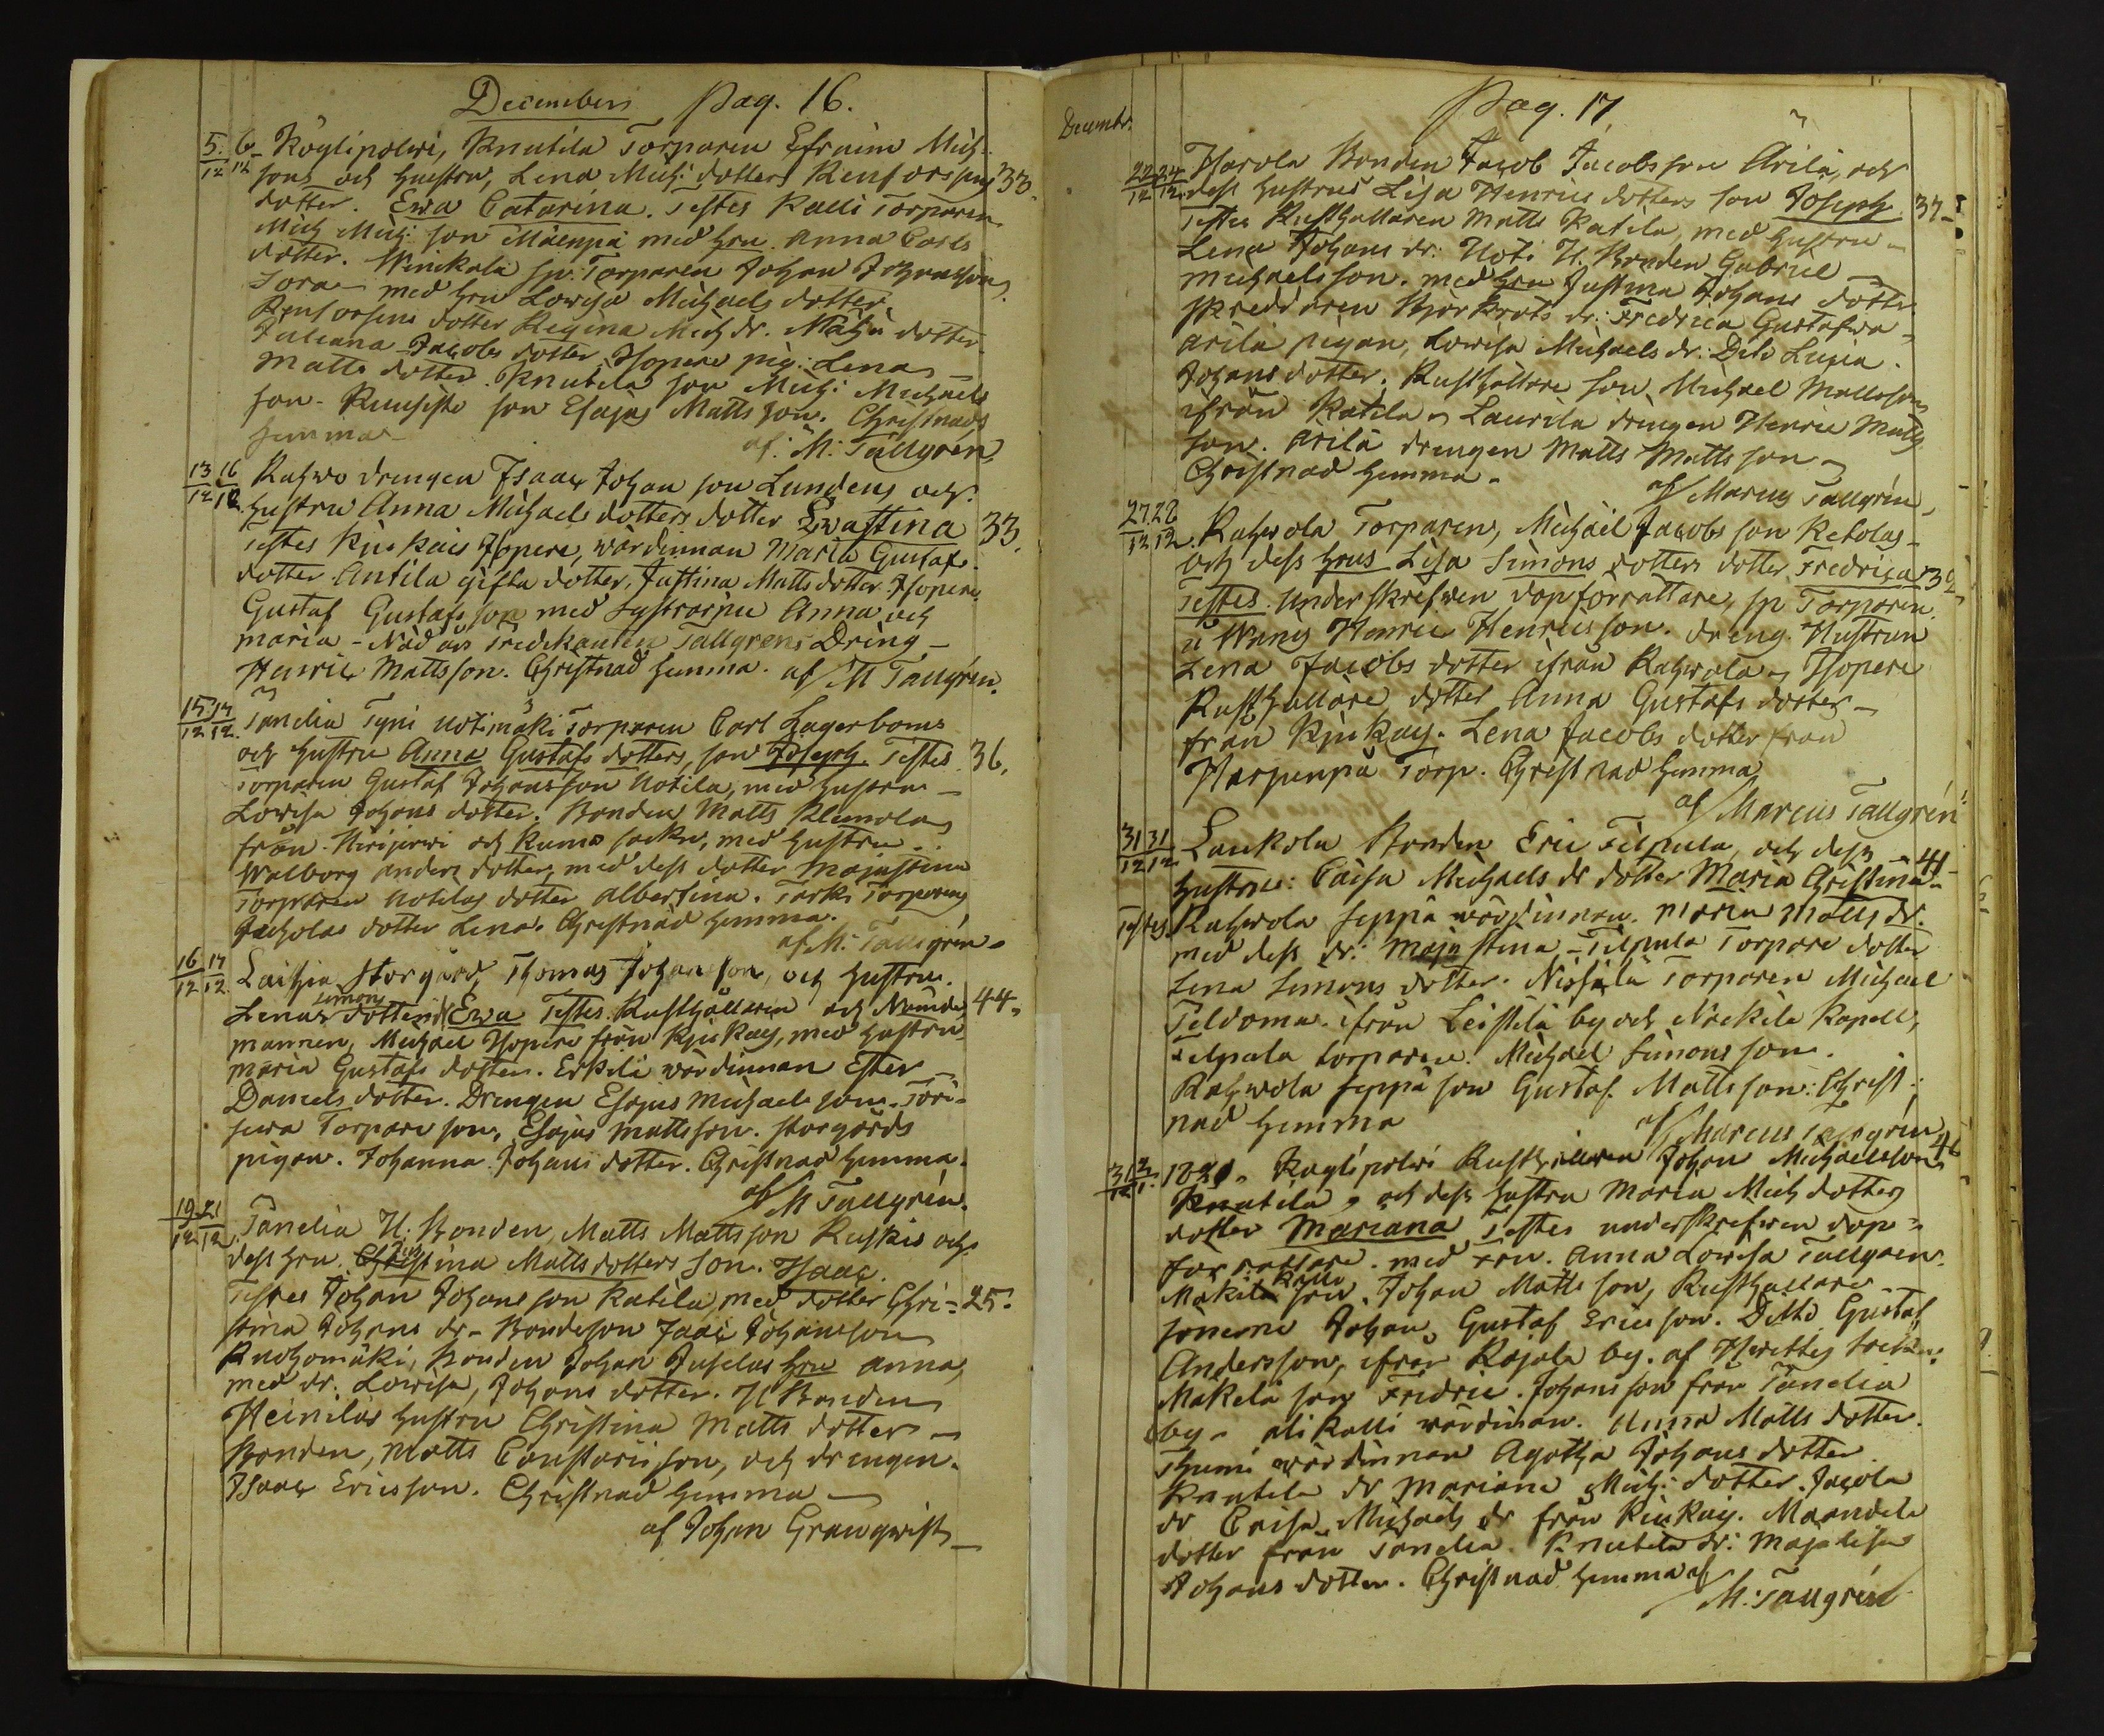 Decembers Pag. 16.
5. 6. Köylipolvi, Knutila Torparen Efraim Mich:
12 12 sons och hustru, Lena Mich: dotters Renfors 33.
dotter. Ewa Catarina. Testes Kalli Torparen
Mich Mich: son Mäenpä med hru Anna Carls
dotter. Winikala sp: Torparen Johan Johansson
Sora med hru Lowisa Michaels dotter.
Renforsens dotter Regina Mich dr. dotter
Juliana Jacobs dotter, Isopere pig: Lena
Matts dotter. Knutila son Mich: Michaels
son. son Esajas Matts son. Christnad
hemma
af: M: Tallgren.
13 16 Kahwo drengen Isaac Johan son Lundens och
12 12 hustru Anna Michaels dotters dotter Ewastina 33.
Testes Kjukais Isopere, wärdinnan Maria Gustafs
dotter. Antila gifta dotter, Justina Matts dotter. Isopere
Gustaf Gustafs son med Systrarne Anna och
Maria - Nådårs Predikanten Tallgrens Dräng
Henric Mattsson. Christnad hemma. af M Tallgrén.
15 17 Tanelia Torparen Carl Lagerboms
12 12 och hustru Anna Gustafs dotters, son Joseph. Testes 36.
Torparen Gustaf Johansson Uotila, med hustru
Lowisa Johans dotter. Bonden Matts Klemola
från och Kumo sockn, med hustru
Walborg Anders dotter, med dess dotter Majastina
Torparen Uotilas dotter Albertina. Torparens
dotter Lena. Christnad hemma.
af M: Tallgrén
16 17 Laihia Storgård, Thomas Johansson, och hustru
12 12 Lenas Simons dotters Ewa Testes. Rusthållaren och Nämde 44.
mannen, Michael Isopere från Kjukais, med hustru
Maria Gustafs dotter. Erkilä wärdinnan Ester
Daniels dotter. Drengen Esajas Michaels son. Tori-
suva Torpare son, Esajas Mattsson. Storgårds
pigan. Johanna Johans dotter. Christnad hemma.
af M Tallgrén.
19 21 Tanelia H. Bonden, Matts Mattsson Ruskis och
12 12 dess hru. Christina Mattsdotters Son. Isaac.
Testes Johan Johansson Katila, med dotter Chri- 25.
stina Johans dr. Bondeson Isaac Johansson
Ruohomäki, Bonden Johan Juselas hru Anna,
med dr. Lowisa, Johans dotter. H Bonden
Heinilas hustru Christina Matts dotter
Bonden, Matts son, och drengen
Isaac Ericsson. Christnad hemma
af Johan Granqwist
Decembr. Pag. 17
22 24 Harola Bonden Jacob Jacobsson Arilä, och
12 12 dess hustrus Lisa Henrics dotters son Joseph. 37
Testes Rusthållaren Matts Katila, med hustru
Lena Johans dr: H. Bonden Gabriel
Michaelsson, med hru Justina Johans dotter.
Skreddaren Björkrots dr: Fredrica Gustafwa
Arilä pigan, Lowisa Michaels dr: Dito
Johans dotter. Rusthållare son Michael Mattsson
ifrån Katila. Laurila drengen Henric Matts
son. Arilä drengen Matts Mattsson
Christnad hemma.
af Marcus Tallgrén
27 28 Kahwola Torparen, Michäel Jacobs son Ketolas
12 12 och dess hrus Lisa Simons dotters dotter Fredrica 39
Testes. Underskrefwen dopförrättare, sp Torparen
Henric Henricsson. dreng. Hustrun
Lena Jacobs dotter ifrån Kahwola, Isopere
Rusthållare dotter Anna Gustafs dotter
från Kjukais. Lena Jacobs dotter från
Harjunpä Torp. Christnad hemma
af Marcus Tallgrén
31 31 Laukola Bonden Eric Filpula, och dess 41
12 12 hustrus: Caisa Michaels dr dotter Maria Christina
Testes Kahwola Seppä wärdinnan. Maria Matts dr.
med dess dr: Majastina - Filpula Torpare dotter
Lena Simons dotter. Torparen Michael
ifrån Leistilä by och Nåckila Kapell,
Filpula torparen. Michael Simonsson.
Kahwola Seppä son Gustaf. Mattsson: Christ-
nad hemma
af Marcus Tallgrén
31 2 1821. Köylipolvi Rusthållaren Johan Michaelsson 46
12 1. Knutila, och dess hustru Maria Mich dotters
dotter Mariana Testes underskrefwen dop-
förrättare med Fru. Anna Lowisa Tallgren.
Mäkilä Kalli son. Johan Mattsson, Rusthållare
sonerne Johan, Gustaf Ericsson. Ditto Gustaf
Andersson, ifrån Rajala by. af Hwittis Sockn.
Mäkelä son Fredric. Johansson från Tanelia
by. Alikalli wärdinnan. Anna Matts dotter.
wärdinnan Agatha Johans dotter
Knutila dr Mariana Mich: dotter. Jacola
dr Caisa Michaels dr från Kiukais.
dotter från Tanelia. Knutila dr: Majalisa
Johans dotter. Christnad hemma af
M: Tallgrén